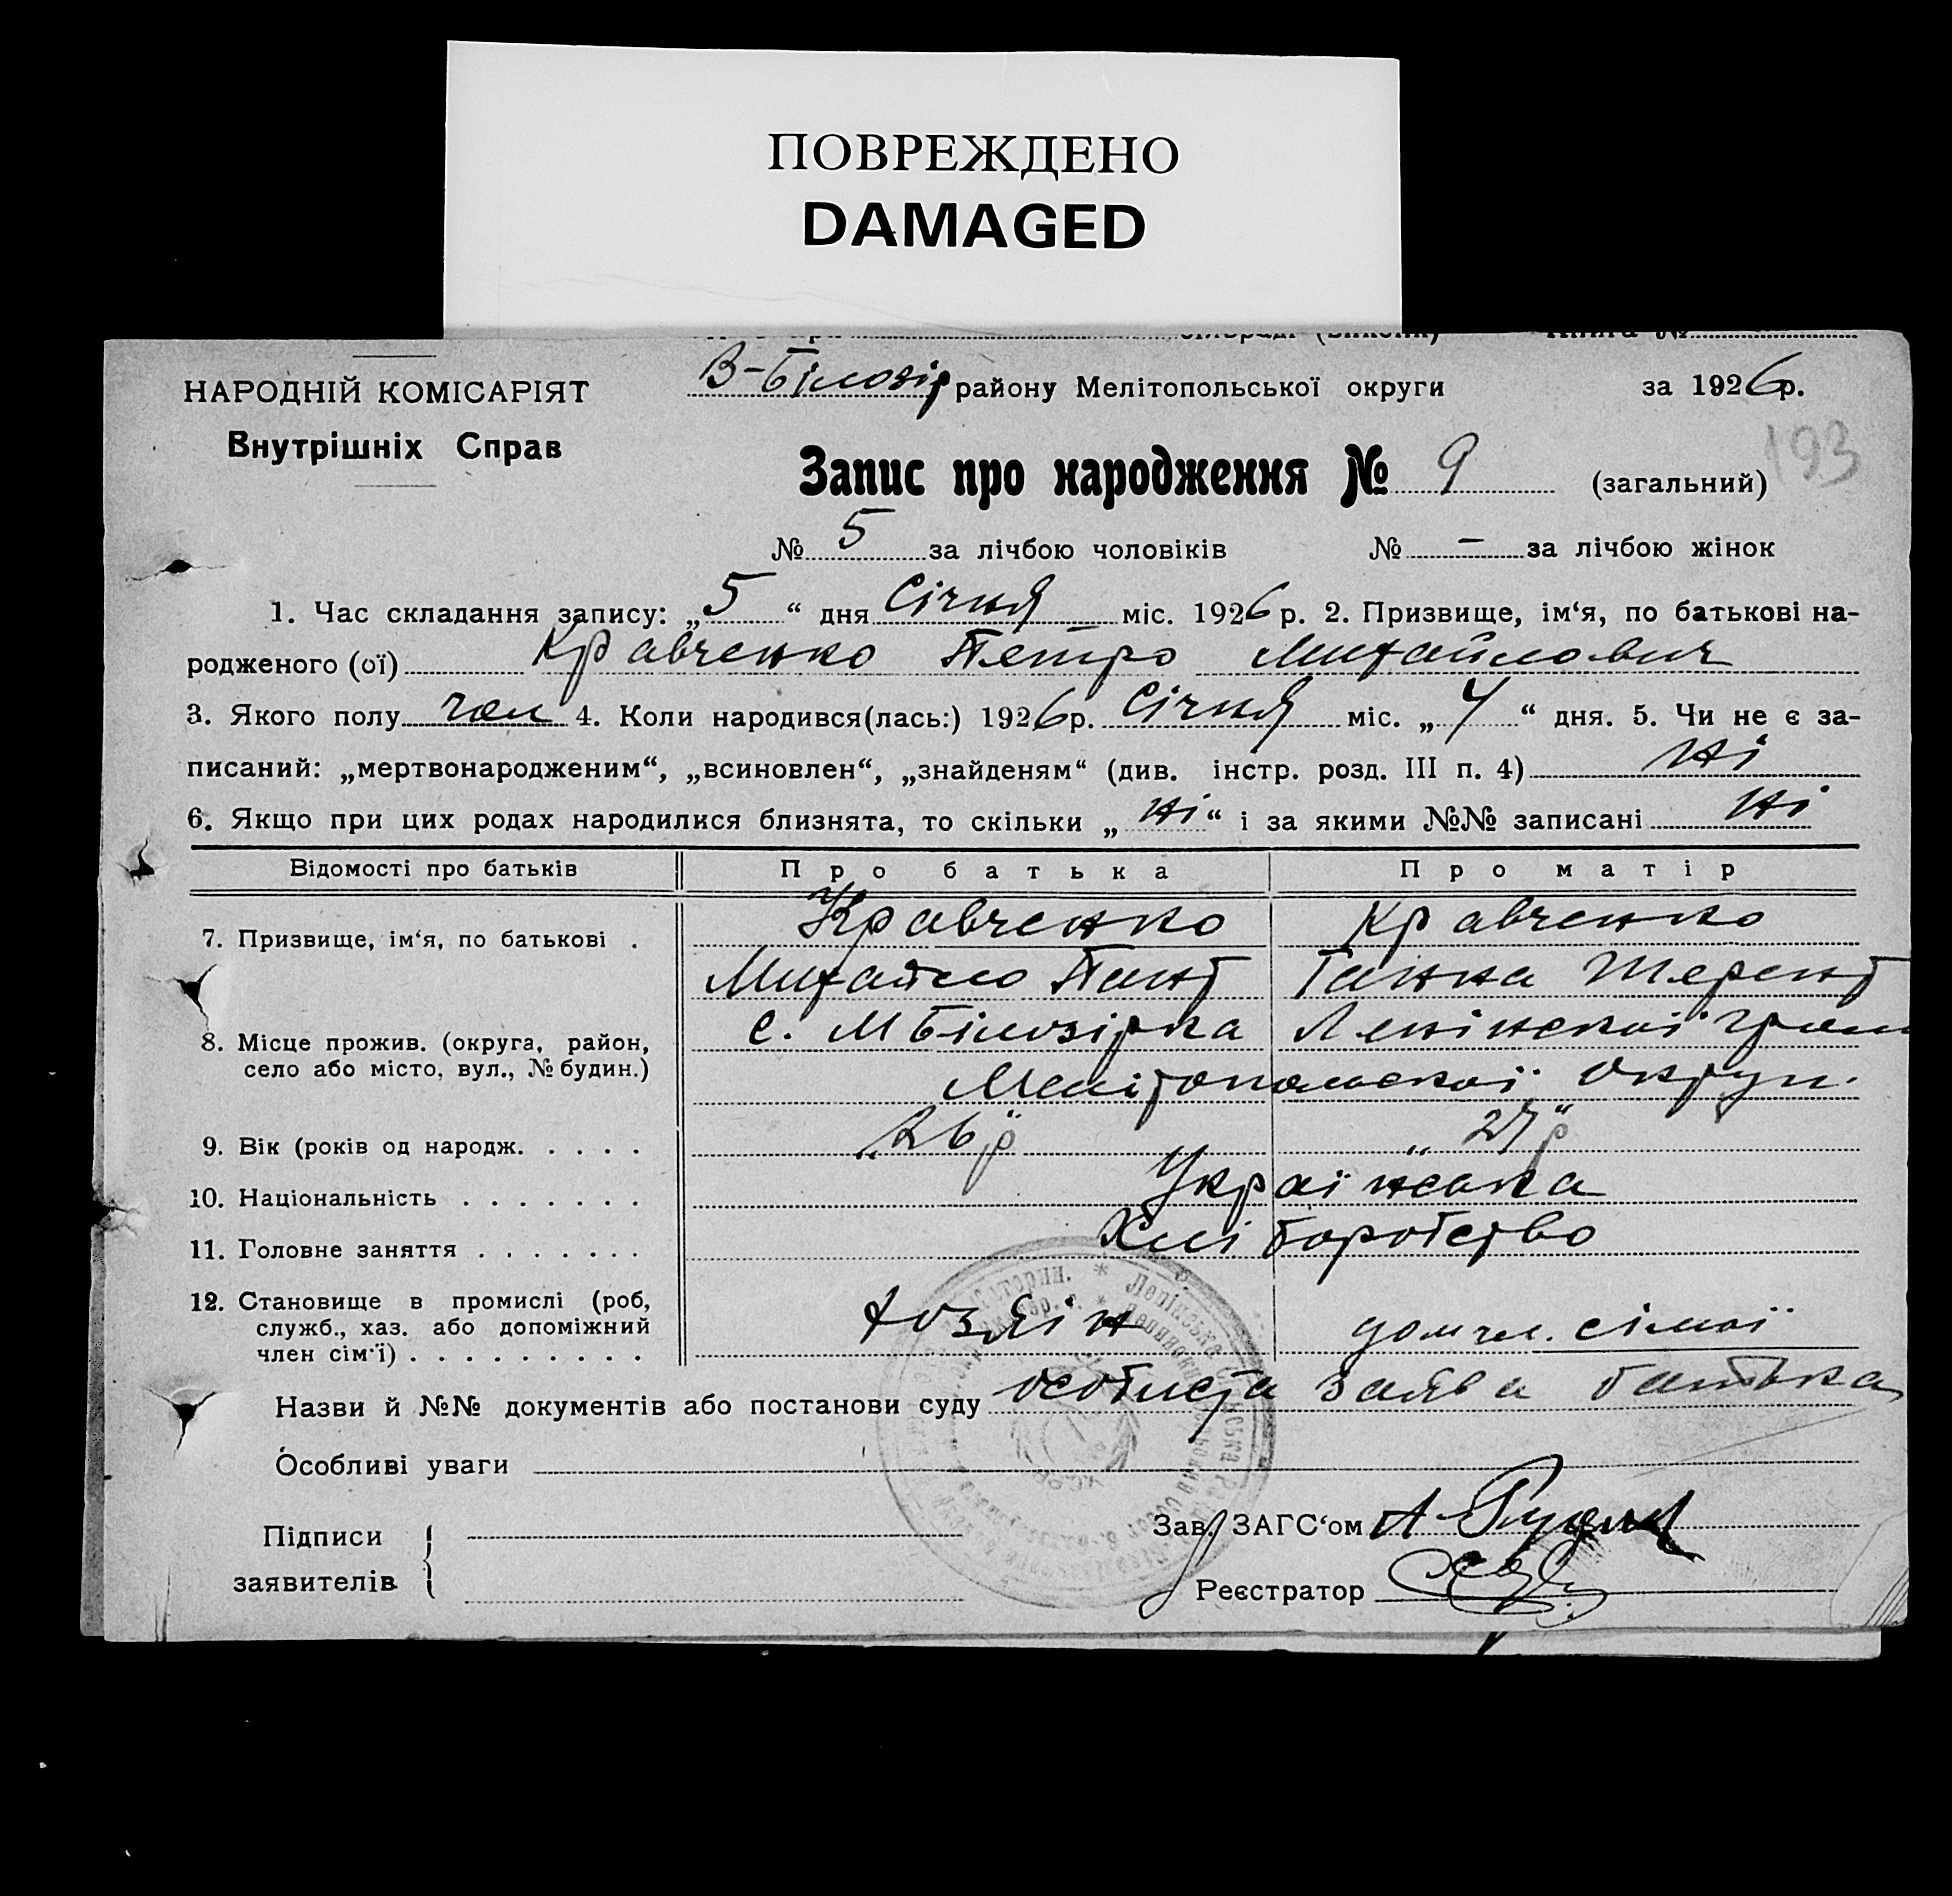 ПОВРЕЖДЕНО
DAMAGED
НАРОДНІЙ КОМІСАРІЯТ
Внутрішніх Справ
В-Білозір району Мелітопольської округи за 1926 р.
193
Запис про народження № 9 (загальний)
№ 5 за лічбою чоловіків № – за лічбою жінок
1. Час складання запису: „5“ дня Січня міс. 1926 р. 2. Призвище, ім‘я, по батькові на-
родженого (ої) Кравченко Петро Михайлович
3. Якого полу чол 4. Коли народився(лась:) 1926 р. Січня міс. „4“ дня. 5. Чи не є за-
писаний: „мертвонародженим“, „всиновлен“, „знайденям“ (див. інстр. розд. III п. 4) Ні
6. Якщо при цих родах народилися близнята, то скільки „Ні“ і за якими №№ записані Ні
Відомості про батьків Про батька Про матір
7. Призвище, ім‘я, по батькові . Кравченко Кравченко
Михайло Пант Ганна Терент
8. Місце прожив. (округа, район, с. М Білозірка Ленінської
село або місто, вул., № будин.) Мелітопольської Округи.
9. Вік (років од народж. . . . . „26 р“ „27 р“
10. Національність . . . . . . . Українська
11. Головне заняття . . . . . . . Хліборобство
12. Становище в промислі (роб,
служб., хаз. або допоміжний Хозяін дом чл. сімої
член сім‘ї) . . . . . . . . .
Назви й №№ документів або постанови суду особиста заява батька
Особливі уваги
Підписи
заявителів
Зав. ЗАГС‘ом
Реєстратор